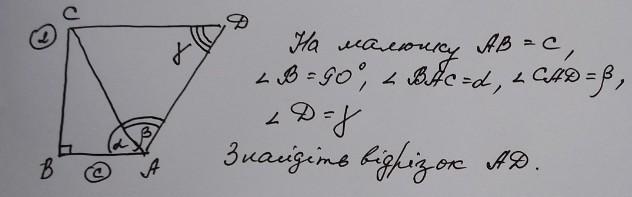 C D
② γ
α β
B ⓒ A
На малюнку AB = C,
∠B = 90°, ∠BAC = α, ∠CAD = β,
∠D = γ
Знайдіть відрізок AD.